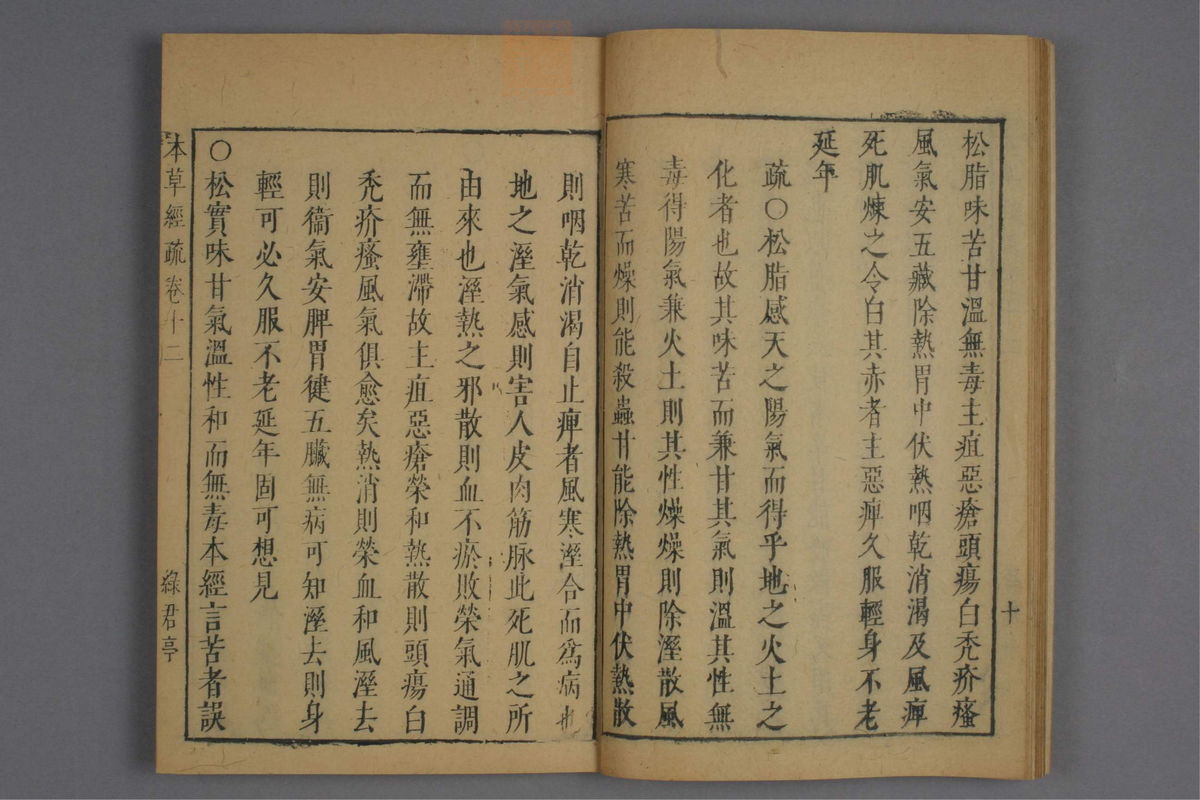 松脂味苦甘溫無毒主疽惡瘡頭瘍白禿疥瘙
風氣安五藏除熱胃中伏熱咽乾消渴及風痺
死肌煉之令白其赤者主惡痺久服輕身不老
延年
疏○松脂感天之陽氣而得乎地之火土之
化者也故其味苦而兼甘其氣則溫其性無
毒得陽氣兼火土則其性燥燥則除溼散風
寒苦而燥則能殺蟲甘能除熱胃中伏熱散
十
則咽乾消渴自止痺者風寒溼合而爲病也
地之溼氣感則害人皮肉筋脉此死肌之所
由來也溼熱之邪散則血不瘀敗榮氣通調
而無壅滯故主疽惡瘡榮和熱散則頭瘍白
禿疥瘙風氣俱愈矣熱消則榮血和風溼去
則衞氣安脾胃徤五臟無病可知溼去則身
輕可必久服不老延年固可想見
○松實味甘氣溫性和而無毒本經言苦者誤
本草經疏卷十二
綠君亭